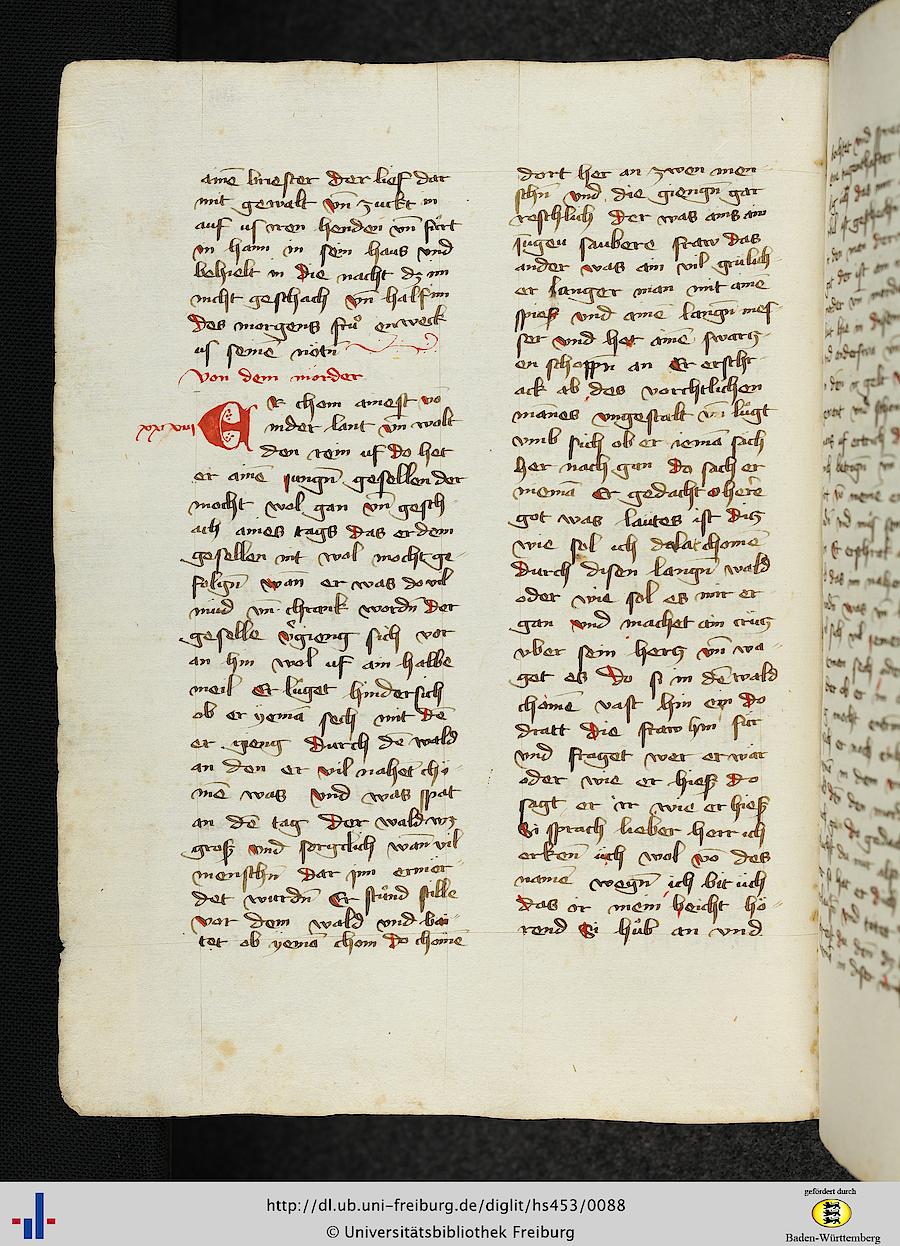 aine briester Der lief dar
mit gewalt vn̄ zuckt in
auf us iren henden vn̄ fůrt
in haim in sein haus vnd
behielt in Die nacht dz im
nicht geschach vn̄ half im
Des morgens frů enweck
us seinē nöten
Von dem mörder
xxxviii
Er chom ainest vō
nider lant vn̄ wolt
den rein uf Do het
er ainē jungn̄ gesellen der
mocht wol gan vn̄ gesch
ach aines tags Das er dem
gesellen nit wol mocht ge
folgn̄ wan er was do vil
mud vn̄ chrank wordn̄ Der
geselle v̄gieng sich vor
an hin wol uf ain halbe
meil Er lůget hindersich
ob er yemā sech mit dē
er gieng Durch dē wald
an den er vil nahet cho
mē was vnd was spat
an dē tag Der wald wz
grosz vnd sorgclich wan̄ vil
menschn̄ Dar inn ermör
det wurdn̄ Er stůnd stille
vor dem wald vnd bai
tet ob yemā chom Do chomē
dort her an zwen men
schn̄ vnd die giengn̄ gar
reschlich Der was ains ain
jugeu saubere fraw Das
ander was ain vil grülich
er langer man mit ainē
spiesz vnd aine langn̄ mes
ser vnd het ainē swarz
en schoppn̄ an Er erschr
ack ab des vorchtlichen
manes vngestalt vn̄ lůgt
vmb sich ob er iemā sach
her nach gan Do sach er
niemā Er gedacht o here
got was lautes ist Dis
wie sol ich dalatchome
Durch disen langn̄ wald
oder wie sol es mir er
gan vnd machet ain crüz
vber sein herz vn̄ wa
get es Do si in dē wald
chomē vast hin ein Do
dratt die fraw hin für
vnd fraget wer er wär
oder wie er hiesz Do
sagt er ir wie er hiesz
Si sprach lieber herr ich
erken üch wol vō des
namē wegn̄ ich bit üch
Das ir mein beicht hö
rend Si hůb an vnd
http://dl.ub.uni-freiburg.de/diglit/hs453/0088
© Universitätsbibliothek Freiburg
gefördert durch
Baden-Württemberg